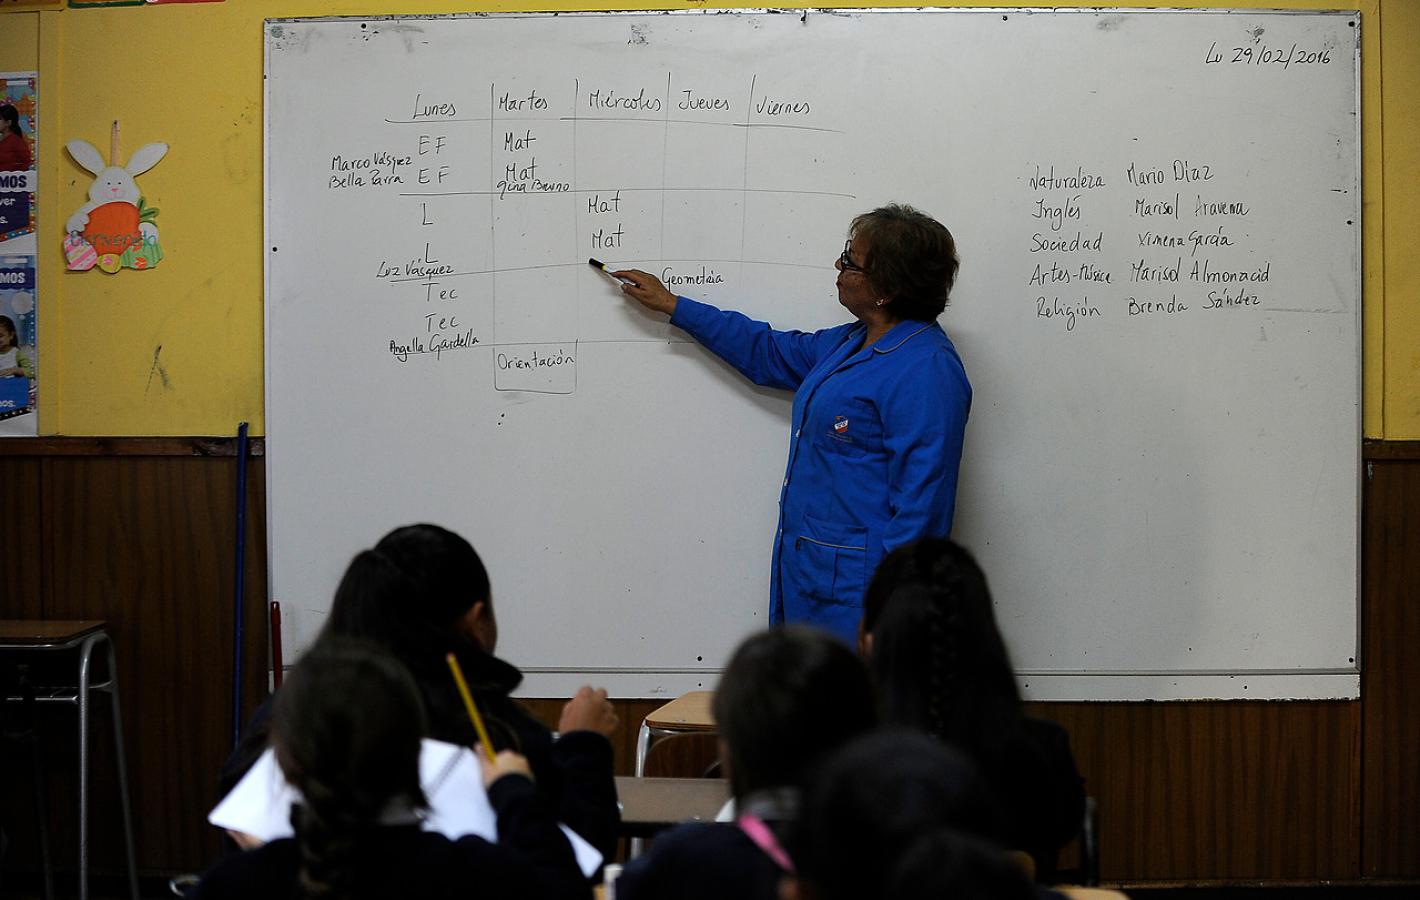 Lu 29/02/2016
Lunes Martes Miércoles Jueves Viernes
EF Mat
Marco Vásquez
Bella Parra EF Mat
Gina Bruno
L Mat
L Mat
Luz Vásquez
Tec Geometria
Tec
Angella Gardella
Orientación
Naturaleza Mario Díaz
Inglés Marisol Aravena
Sociedad Ximena García
Artes-Música Marisol Almonacid
Religión Brenda Sánchez
Bienvenido
MOS
MOS